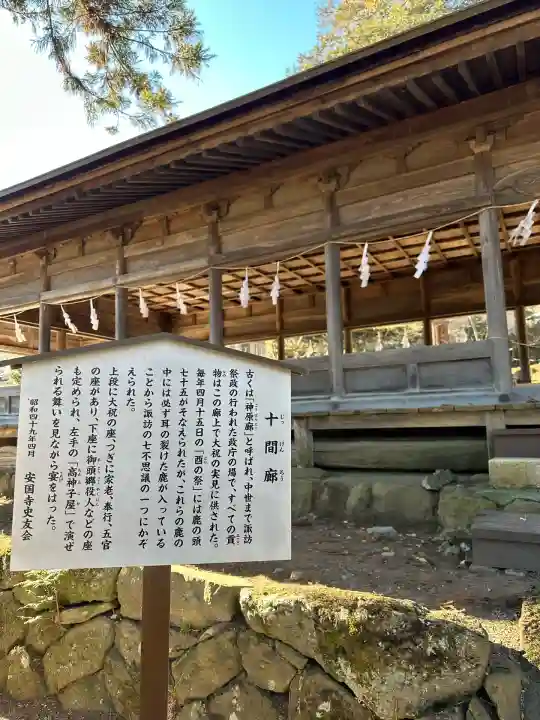 十間廊
じっけんろう
古くは「神原廊」と呼ばれ、中世まで諏訪
祭政の行われた政庁の場で、すべての貢
物はこの廊上で大祝の実見に供された。
毎年四月十五日の「酉の祭」には鹿の頭
七十五がそなえられたが、これらの鹿の
中には必ず耳の裂けた鹿が入っている
ことから諏訪の七不思議の一つにかぞ
えられた。
上段に大祝の座、つぎに家老、奉行、五官
の座があり、下座に御頭郷役人などの座
も定められ、左手の「高神子屋」で演ぜ
られる舞いを見ながら宴をはった。
昭和四十九年四月　安国寺史友会